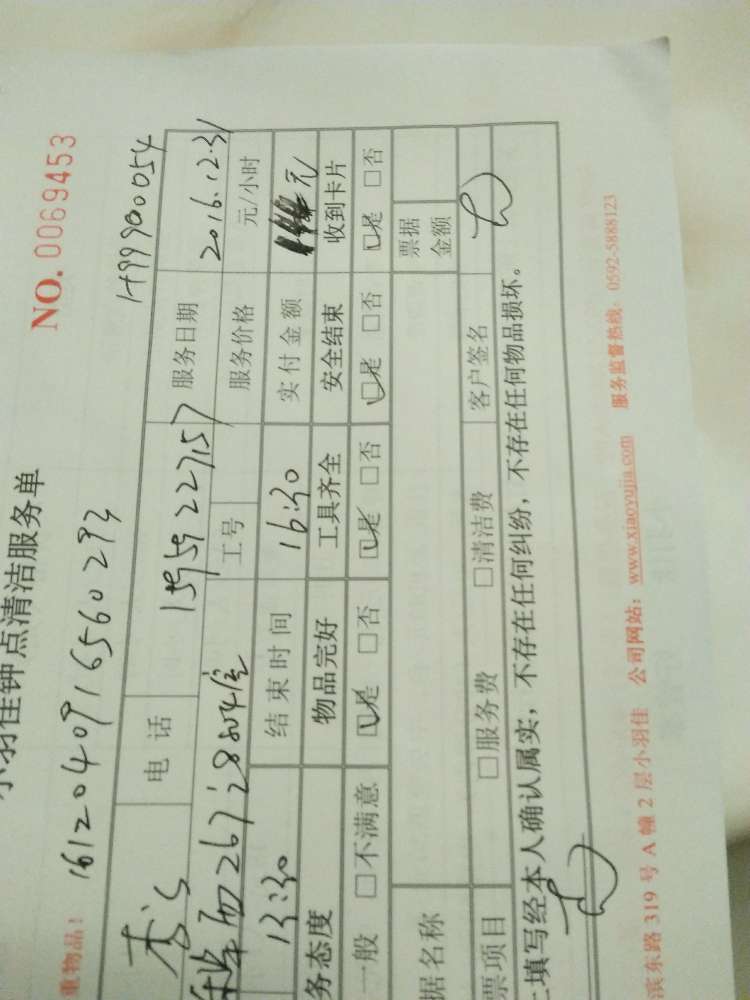 NO. 0069453
小羽佳钟点清洁服务单
重物品！ 1612040916560293 1499900054
李 电话 15959227157 服务日期 2016.12.31
267 28 504室 工号 服务价格 元/小时
13:30 结束时间 16:30 实付金额 元
务态度 物品完好 工具齐全 安全结束 收到卡片
一般 □不满意 □是 □否 □是 □否 □是 □否 □是 □否
据名称 票据金额
票项目 □服务费 □清洁费 客户签名
上填写经本人确认属实，不存在任何纠纷，不存在任何物品损坏。
滨东路 319 号 A 幢 2 层小羽佳 公司网站：www.xiaoyujia.com 服务监督热线：0592-5888123